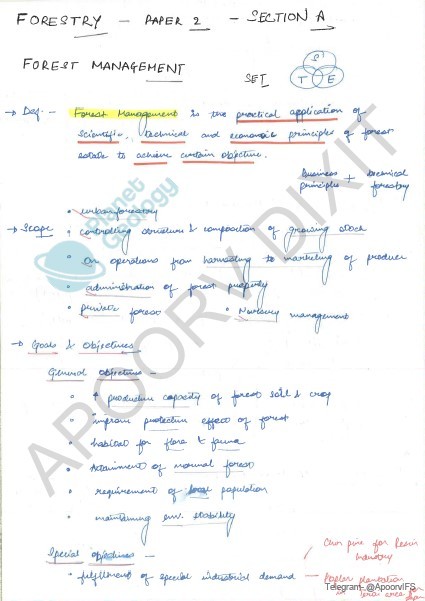 FORESTRY - PAPER 2 - SECTION A
FOREST MANAGEMENT
SET
S
T
E
→ Def:- Forest Management is the practical application of
scientific, technical and economic principles of forest
estate to achieve certain objective.
Business principles + technical forestry
• urban forestry
→ Scope • controlling structure & composition of growing stock
• On operations from harvesting to marketing of produce
• administration of forest property
• private forest • Nursery management
→ Goals & Objectives -
General objectives -
• ↑ productive capacity of forest soil & crop
• improve protective effect of forest
• habitat for flora & fauna
• attainment of normal forest
• requirement of local population
• maintaining env. stability
Special objectives -
• fulfillment of special industrial demand
Chir pine for Resin Industry
Poplar plantation in terai area
Planet Geology
APOORV DIXIT
Telegram- @ApoorvIFS